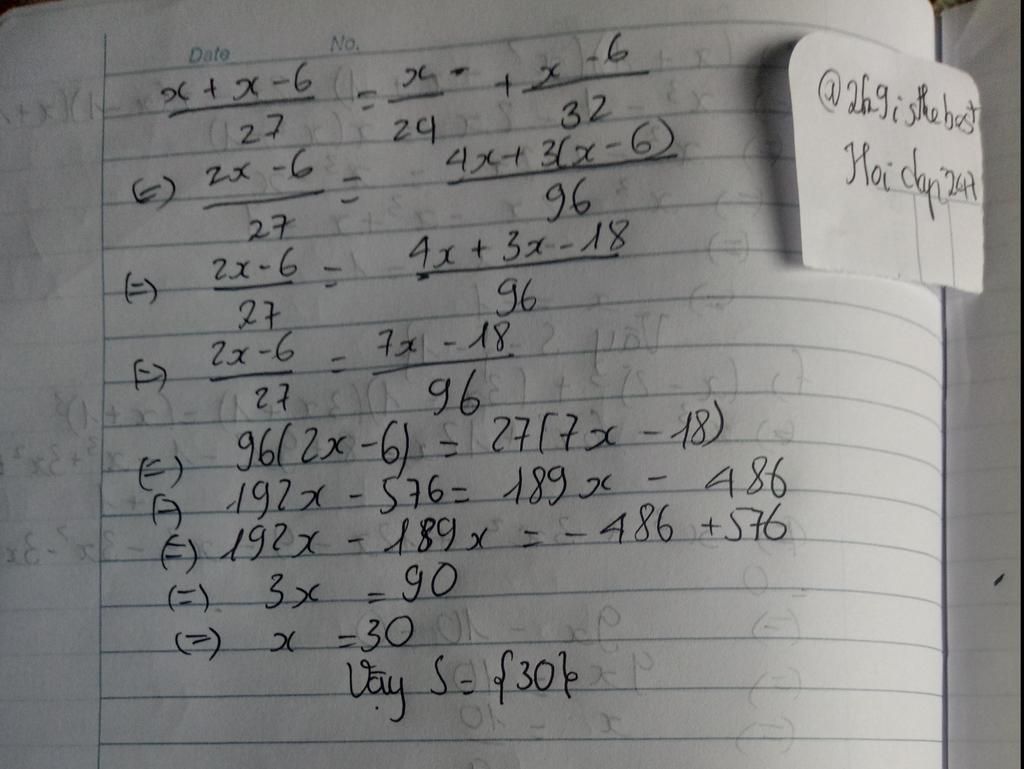 Date No.
x + x - 6 / 27 = x - / 24 + x - 6 / 32
(=) 2x - 6 / 27 = 4x + 3(x - 6) / 96
(=) 2x - 6 / 27 = 4x + 3x - 18 / 96
(=) 2x - 6 / 27 = 7x - 18 / 96
(=) 96(2x - 6) = 27(7x - 18)
(=) 192x - 576 = 189x - 486
(=) 192x - 189x = - 486 + 576
(=) 3x = 90
(=) x = 30
Vậy S = {30}
@2k9isthebest
Hoidap247